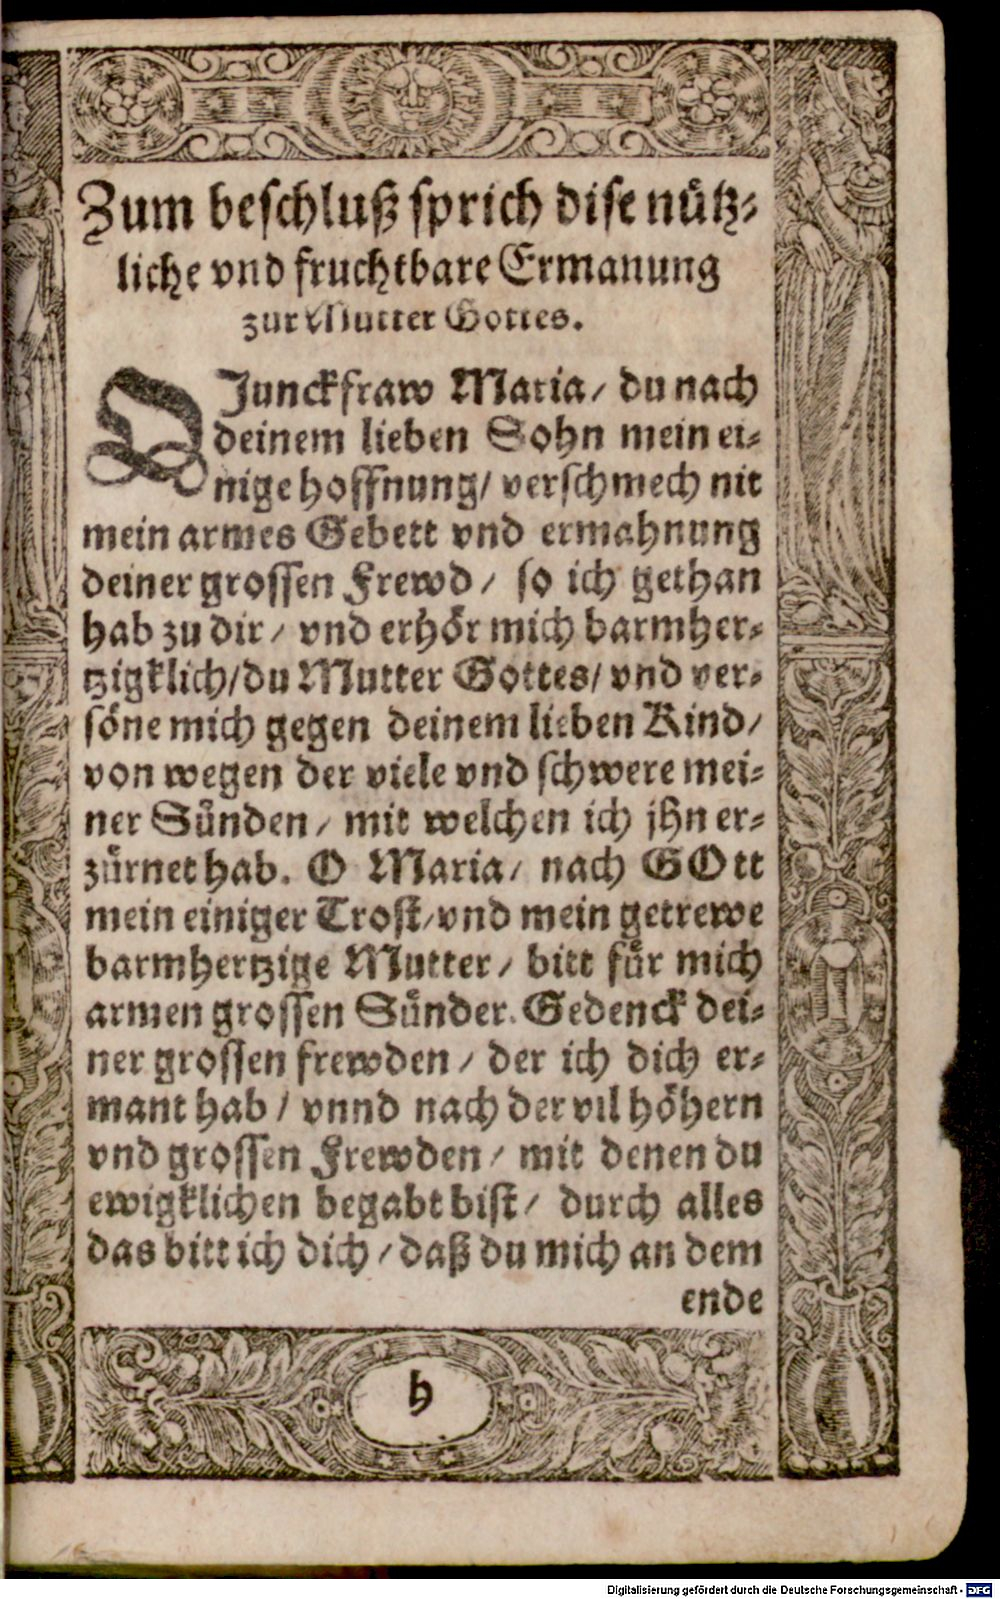 Zum beschluß sprich dise nuͤtz⸗
liche vnd fruchtbare Ermanung
zur Mutter Gottes.
O Junckfraw Maria/ du nach
deinem lieben Sohn mein ei⸗
nige hoffnung/ verschmech nit
mein armes Gebett vnd ermahnung
deiner grossen Frewd/ so ich gethan
hab zu dir/ vnd erhoͤr mich barmher⸗
tzigklich/ du Mutter Gottes/ vnd ver⸗
soͤne mich gegen deinem lieben Kind/
von wegen der viele vnd schwere mei⸗
ner Suͤnden/ mit welchen ich jhn er⸗
zuͤrnet hab. O Maria/ nach GOtt
mein einiger Trost/ vnd mein getrewe
barmhertzige Mutter/ bitt fuͤr mich
armen grossen Suͤnder. Gedenck dei⸗
ner grossen frewden/ der ich dich er⸗
mant hab/ vnnd nach der vil hoͤhern
vnd grossen Frewden/ mit denen du
ewigklichen begabt bist/ durch alles
das bitt ich dich/ daß du mich an dem
ende
h
Digitalisierung gefördert durch die Deutsche Forschungsgemeinschaft - DFG